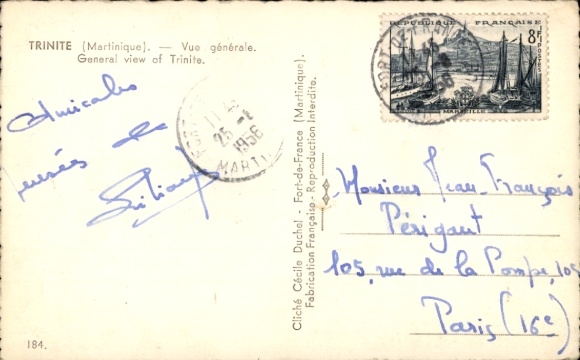 TRINITE (Martinique). — Vue générale.
General view of Trinite.
Amicales
pensées de
Liliane
184.
Cliché Cécile Duchel - Fort-de-France (Martinique).
Fabrication Française - Reproduction Interdite.
25 - 1956
MARTI
REPUBLIQUE FRANÇAISE
8F
POSTES
MARSEILLE
Monsieur Jean-François
Périgant
105, rue de la Pompe, 105
Paris (16e)